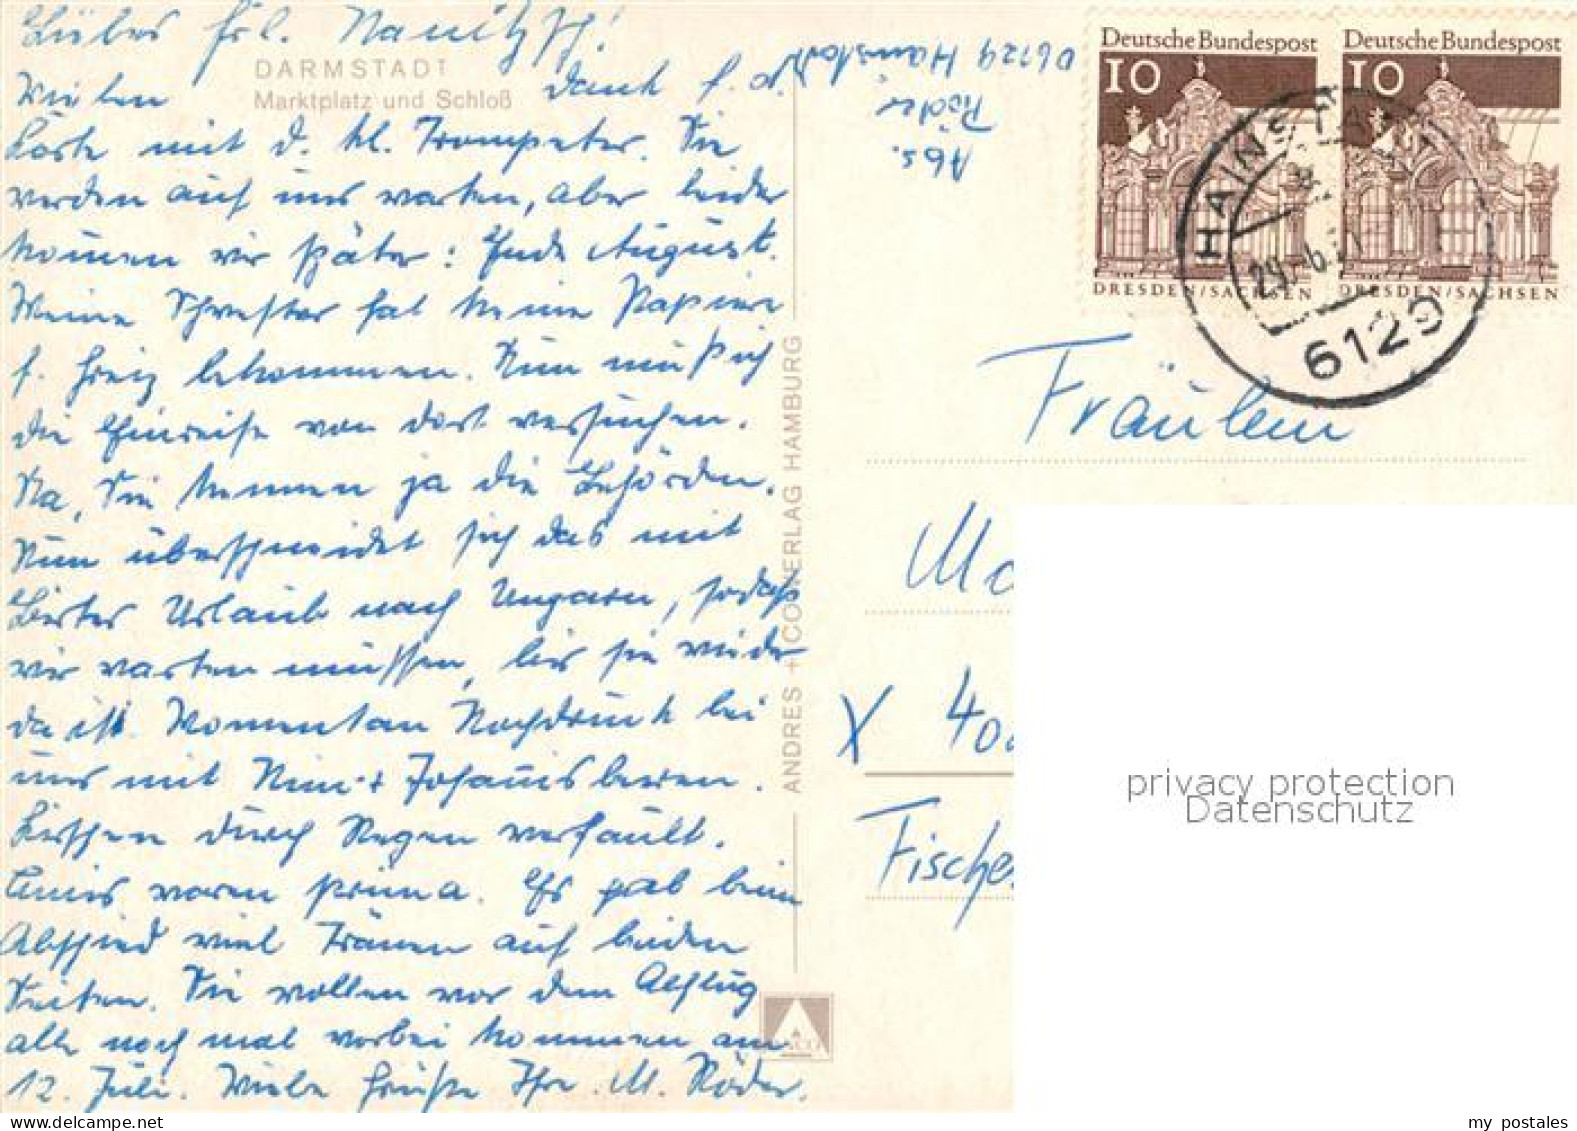 Liebes Frl. Nanitzsch!
DARMSTADT
Marktplatz und Schloß
Vielen Dank f. d.
Karte mit d. kl. Trompeter. Sie
werden auf uns warten, aber leider
kommen wir später: Ende August.
Meine Schwester hat keine Papiere
f. Greiz bekommen. Nun muß ich
die Einreise von dort versuchen.
Na, Sie kennen ja die Behörden.
Nun überschneidet sich das mit
Urlaub nach Ungarn, sodaß
wir warten müssen, bis sie wieder
da ist. Momentan Hochdruck bei
uns mit Him- + Johannisbeeren.
Kirschen durch Regen verfault.
waren prima. Es gab beim
Abschied viel Tränen auf beiden
Seiten. Sie wollen vor dem Abflug
alle noch mal vorbei kommen am
12. Juli. Viele Grüße Ihre M. Röder.
ANDRES + CO VERLAG HAMBURG
Abs.
Röder
D 6129 Hainstadt
Deutsche Bundespost
10
DRESDEN/SACHSEN
Deutsche Bundespost
10
DRESDEN/SACHSEN
HAINSTADT
29.-6.71
6129
Fräulein
X 40
Fische
privacy protection
Datenschutz
my postales